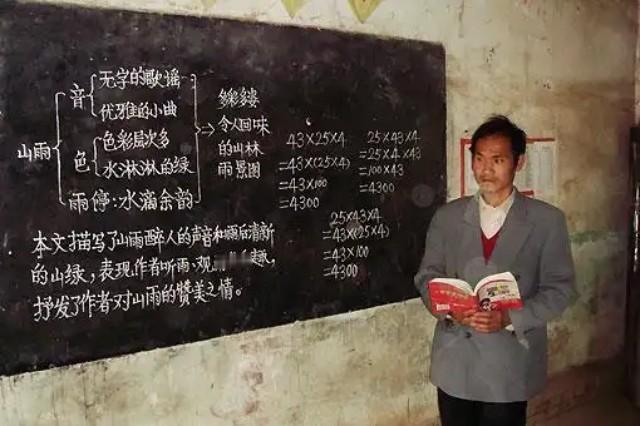 山雨
音
无字的歌谣
优雅的小曲
色
色彩层次多
水淋淋的绿
雨停:水滴余韵
多彩多
令人回味
的山林
雨景图
本文描写了山雨醉人的声音和雨后清新
的山绿,表现作者听雨、观
趣,
抒发了作者对山雨的赞美之情。
43×25×4
=43×(25×4)
=43×100
=4300
25×43×4
=25×4×43
=100×43
=4300
25×43×4
=43×(25×4)
=43×100
=4300